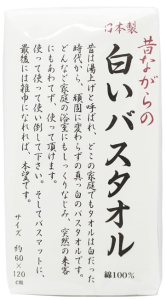 日本製
昔ながらの
白いバスタオル
昔は湯上げと呼ばれ、どこの家庭でもタオルは白だった
時代から、頑固に変わらずの真っ白のバスタオルです。
どんなご家庭の浴室にもしっくりなじみ、突然の来客
にもあわてず、使って頂けます。
使って使って使い倒して下さい。そしてバスマットに、
最後には雑巾になれれば、本望です。
サイズ 約60×120cm
綿100%